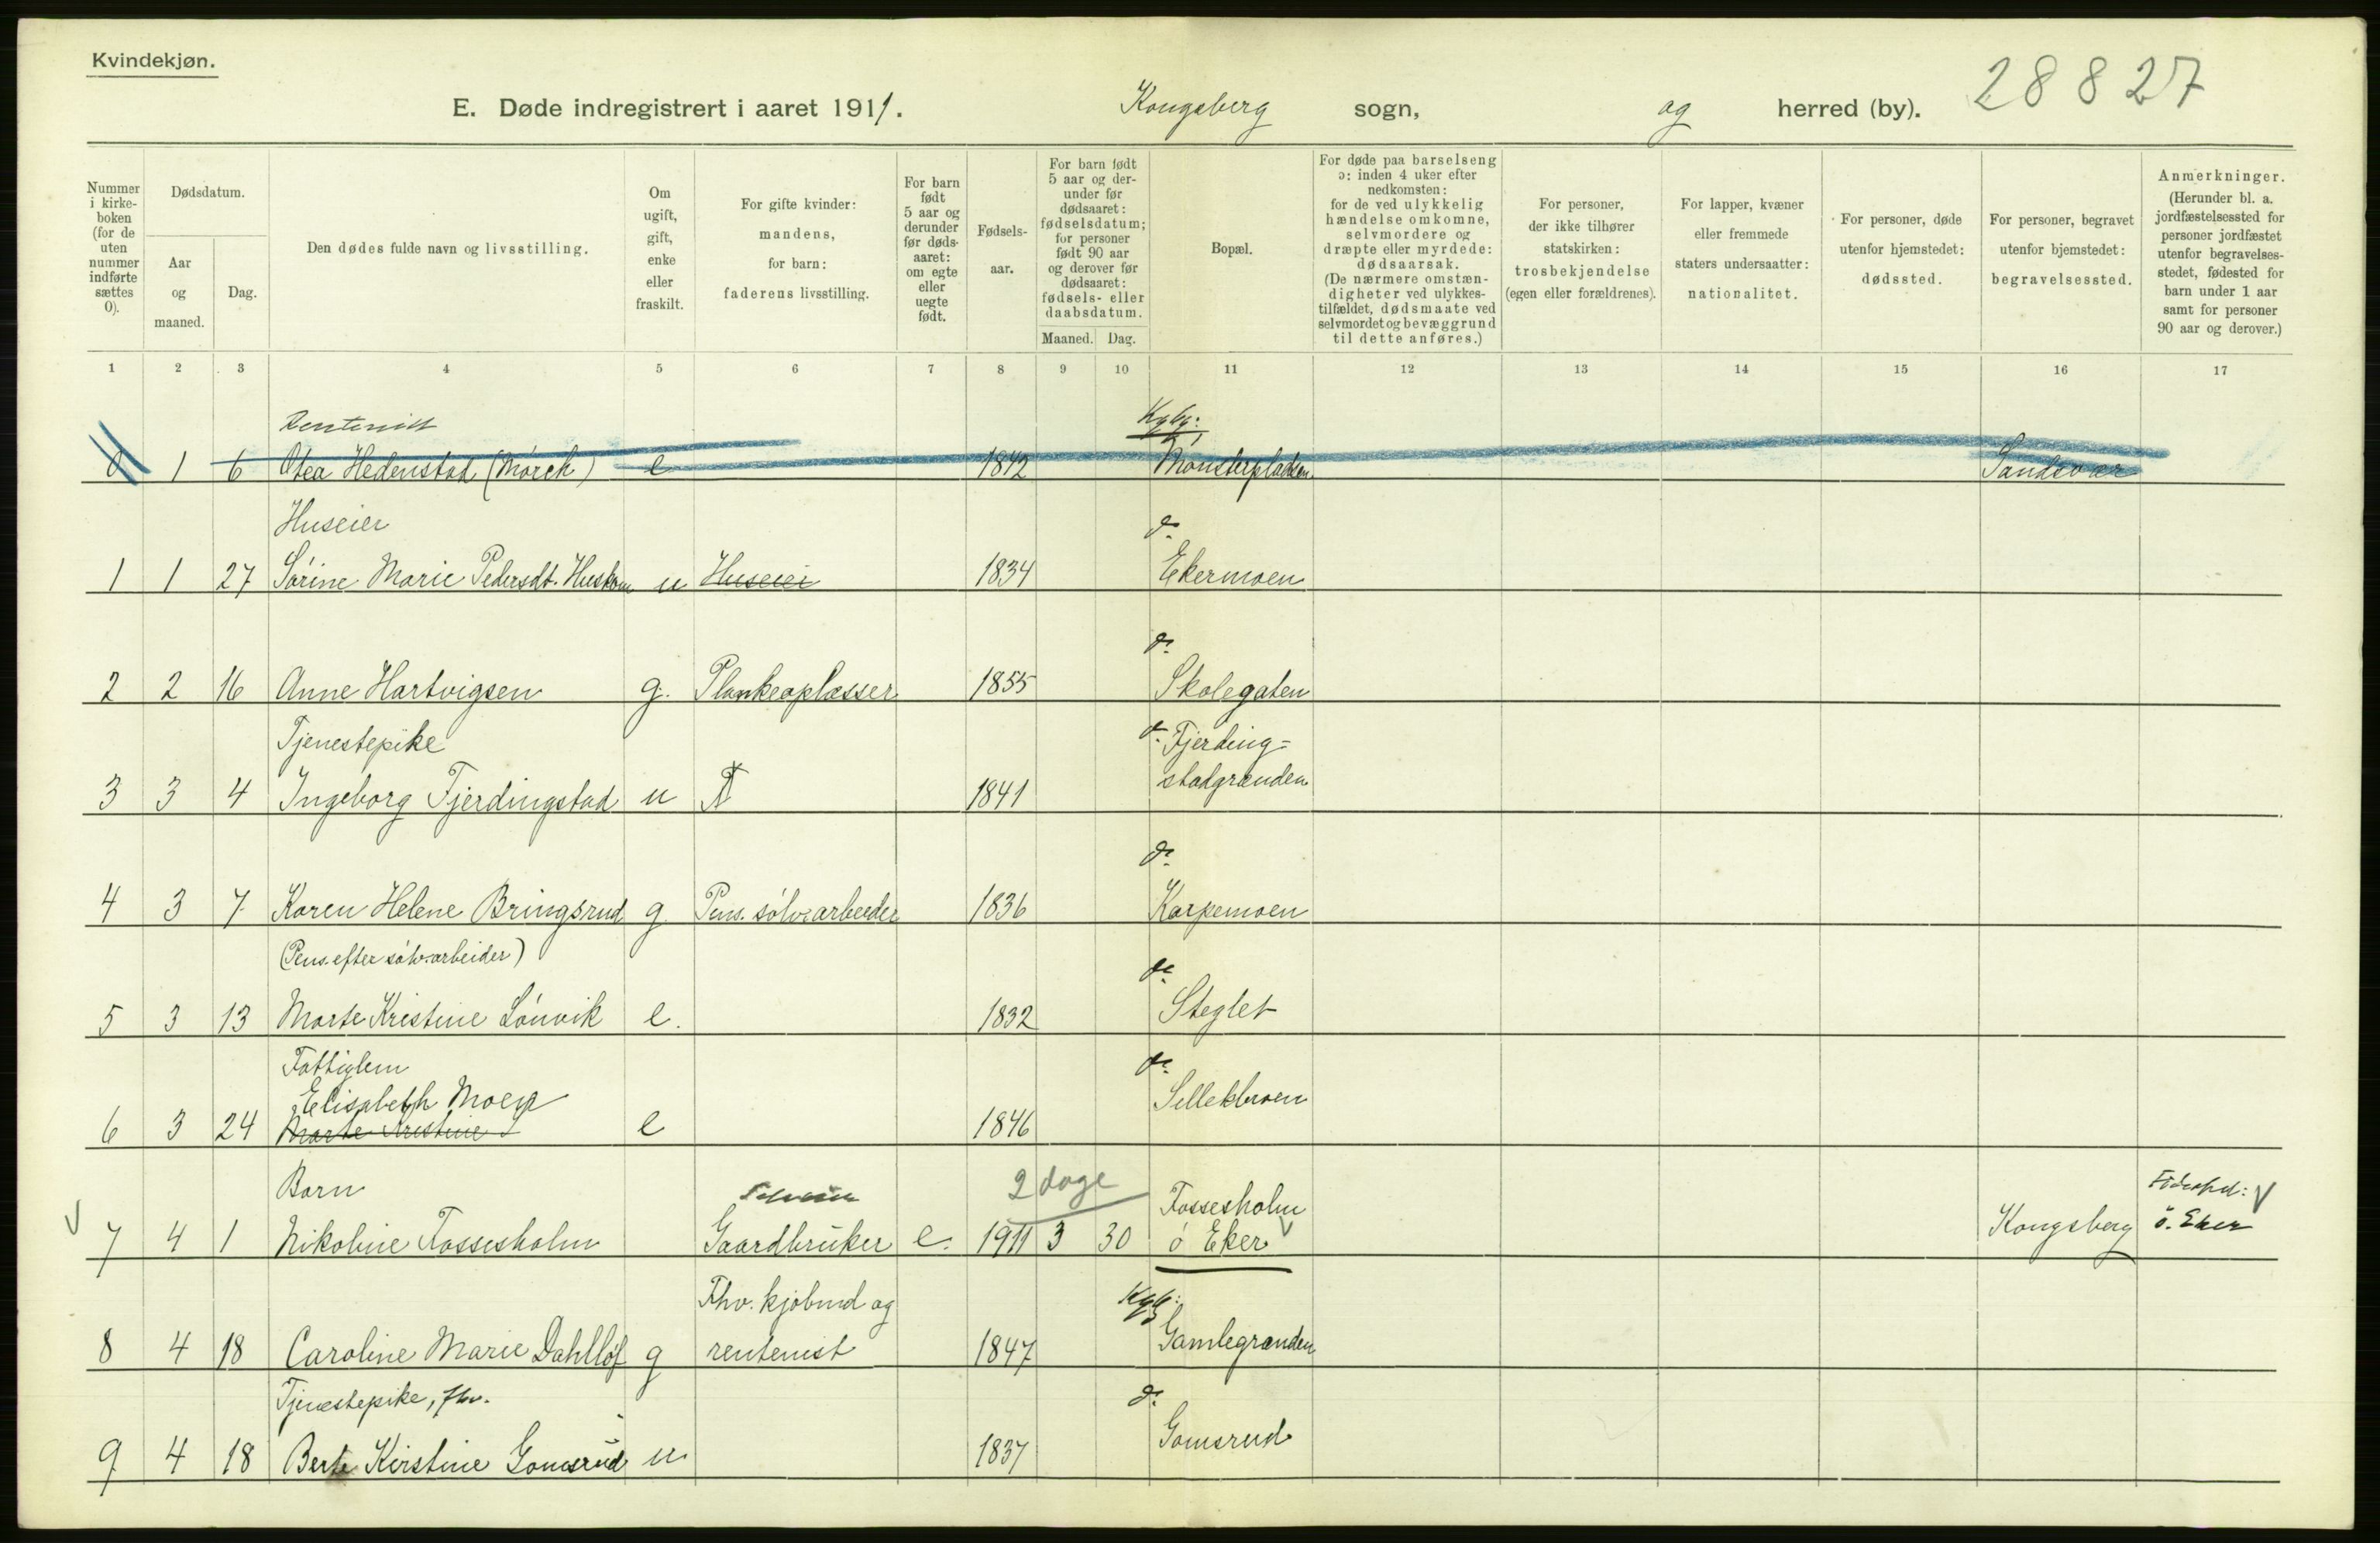 Kvindekjøn.
E. Døde indregistrert i aaret 1911. Kongsberg sogn, og herred (by). 28827
Nummer i kirke-boken (for de uten nummer indførte sættes 0).
Dødsdatum.
Aar og maaned.
Dag.
Den dødes fulde navn og livsstilling.
Om ugift, gift, enke eller fraskilt.
For gifte kvinder: mandens, for barn: faderens livsstilling.
For barn født 5 aar og derunder før døds-aaret: om egte eller uegte født.
Fødsels-aar.
For barn født 5 aar og der-under før dødsaaret: fødselsdatum; for personer født 90 aar og derover før dødsaaret: fødsels- eller daabsdatum.
Maaned. Dag.
Bopæl.
For døde paa barselseng ɔ: inden 4 uker efter nedkomsten: for de ved ulykkelig hændelse omkomne, selvmordere og dræpte eller myrdede: dødsaarsak. (De nærmere omstæn-digheter ved ulykkes-tilfældet, dødsmaate ved selvmordet og bevæggrund til dette anføres.)
For personer, der ikke tilhører statskirken: trosbekjendelse (egen eller forældrenes).
For lapper, kvæner eller fremmede staters undersaatter: nationalitet.
For personer, døde utenfor hjemstedet: dødssted.
For personer, begravet utenfor hjemstedet: begravelsessted.
Anmerkninger. (Herunder bl. a. jordfæstelsessted for personer jordfæstet utenfor begravelses-stedet, fødested for barn under 1 aar samt for personer 90 aar og derover.)
1 2 3 4 5 6 7 8 9 10 11 12 13 14 15 16 17
Rentenist Kgbg:
0 1 6 Otea Hedenstad (Mørch) e 1842 Mønsterpladsen Sandsvær
Huseier do
1 1 27 Sørine Marie Pedersdt. Huskom u Huseier 1834 Ekermoen
do
2 2 16 Anne Hartvigsen g. Plankeaplasser 1855 Skolegaten
Tjenestepike do Fjerding-
3 3 4 Ingeborg Fjerdingstad u 1841 stadgrænden
do
4 3 7 Karen Helene Bringsrud g Pens. sølv.arbeider 1836 Karpemoen
(Pens. efter sølv.arbeider) do
5 3 13 Marte Kristine Lønvik e. 1832 Steglet
Fattiglem do
Elisabeth Moen Sellekbroen
6 3 24 Marte Kristine L e 1846
Barn 2 dage Fossesholm Fødested: V
V 7 4 1 Nikoline Fossesholm Gaardbruker e. 1911 3 30 ø Eker V Kongsberg ö. Eker
Fhv. kjøbmd og Kgbg:
8 4 18 Caroline Marie Dahlløf g rentenist 1847 Gamlegrænden
Tjenestepike, fhv. do
9 4 18 Berte Kirstine Gomsrud u 1837 Gomsrud